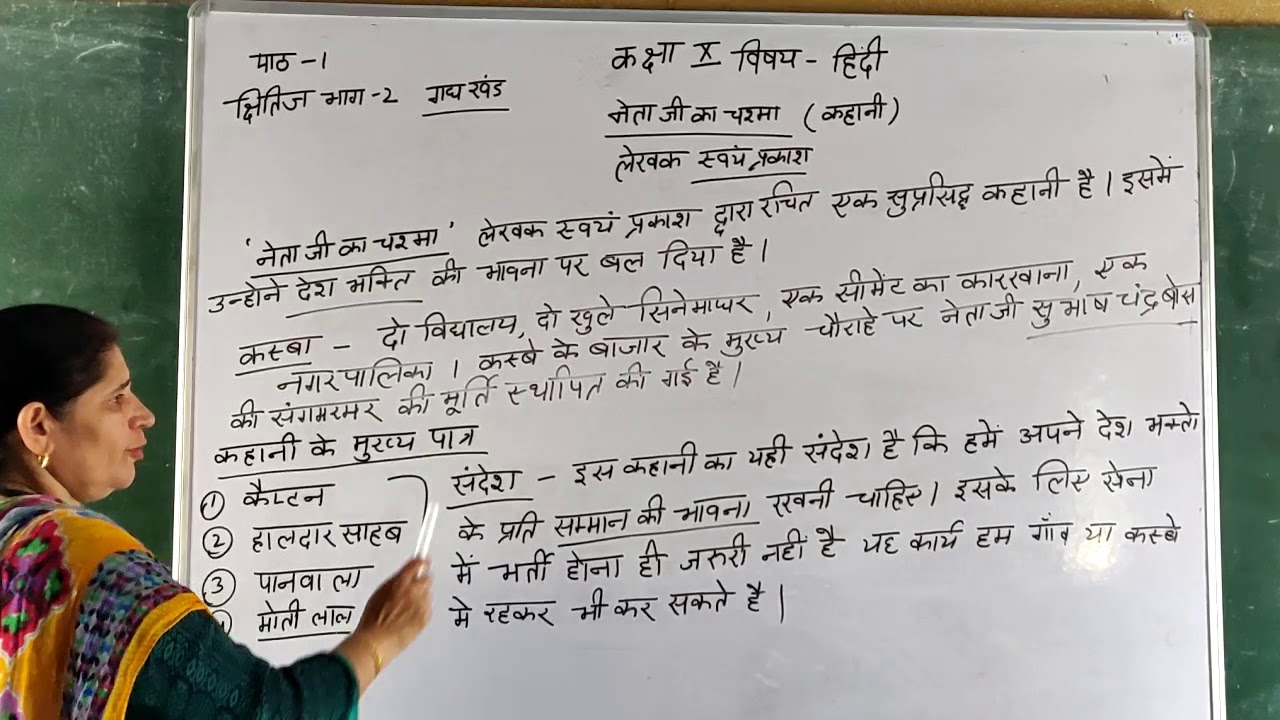 पाठ -1
कक्षा X विषय - हिंदी
क्षितिज भाग-2 गद्य खंड
नेता जी का चश्मा (कहानी)
लेखक स्वयं प्रकाश
'नेता जी का चश्मा' लेखक स्वयं प्रकाश द्वारा रचित एक सुप्रसिद्ध कहानी है। इसमें
उन्होने देश भक्ति की भावना पर बल दिया है।
कस्बा - दो विद्यालय, दो खुले सिनेमाघर, एक सीमेंट का कारखाना, एक
नगरपालिका। कस्बे के बाजार के मुख्य चौराहे पर नेताजी सुभाष चंद्र बोस
की संगमरमर की मूर्ति स्थापित की गई है।
कहानी के मुख्य पात्र
① कैप्टन
② हालदार साहब
③ पानवाला
मोती लाल
संदेश - इस कहानी का यही संदेश है कि हमें अपने देश भक्तो
के प्रति सम्मान की भावना रखनी चाहिए। इसके लिए सेना
में भर्ती होना ही जरुरी नहीं है यह कार्य हम गाँव या कस्बे
मे रहकर भी कर सकते है।